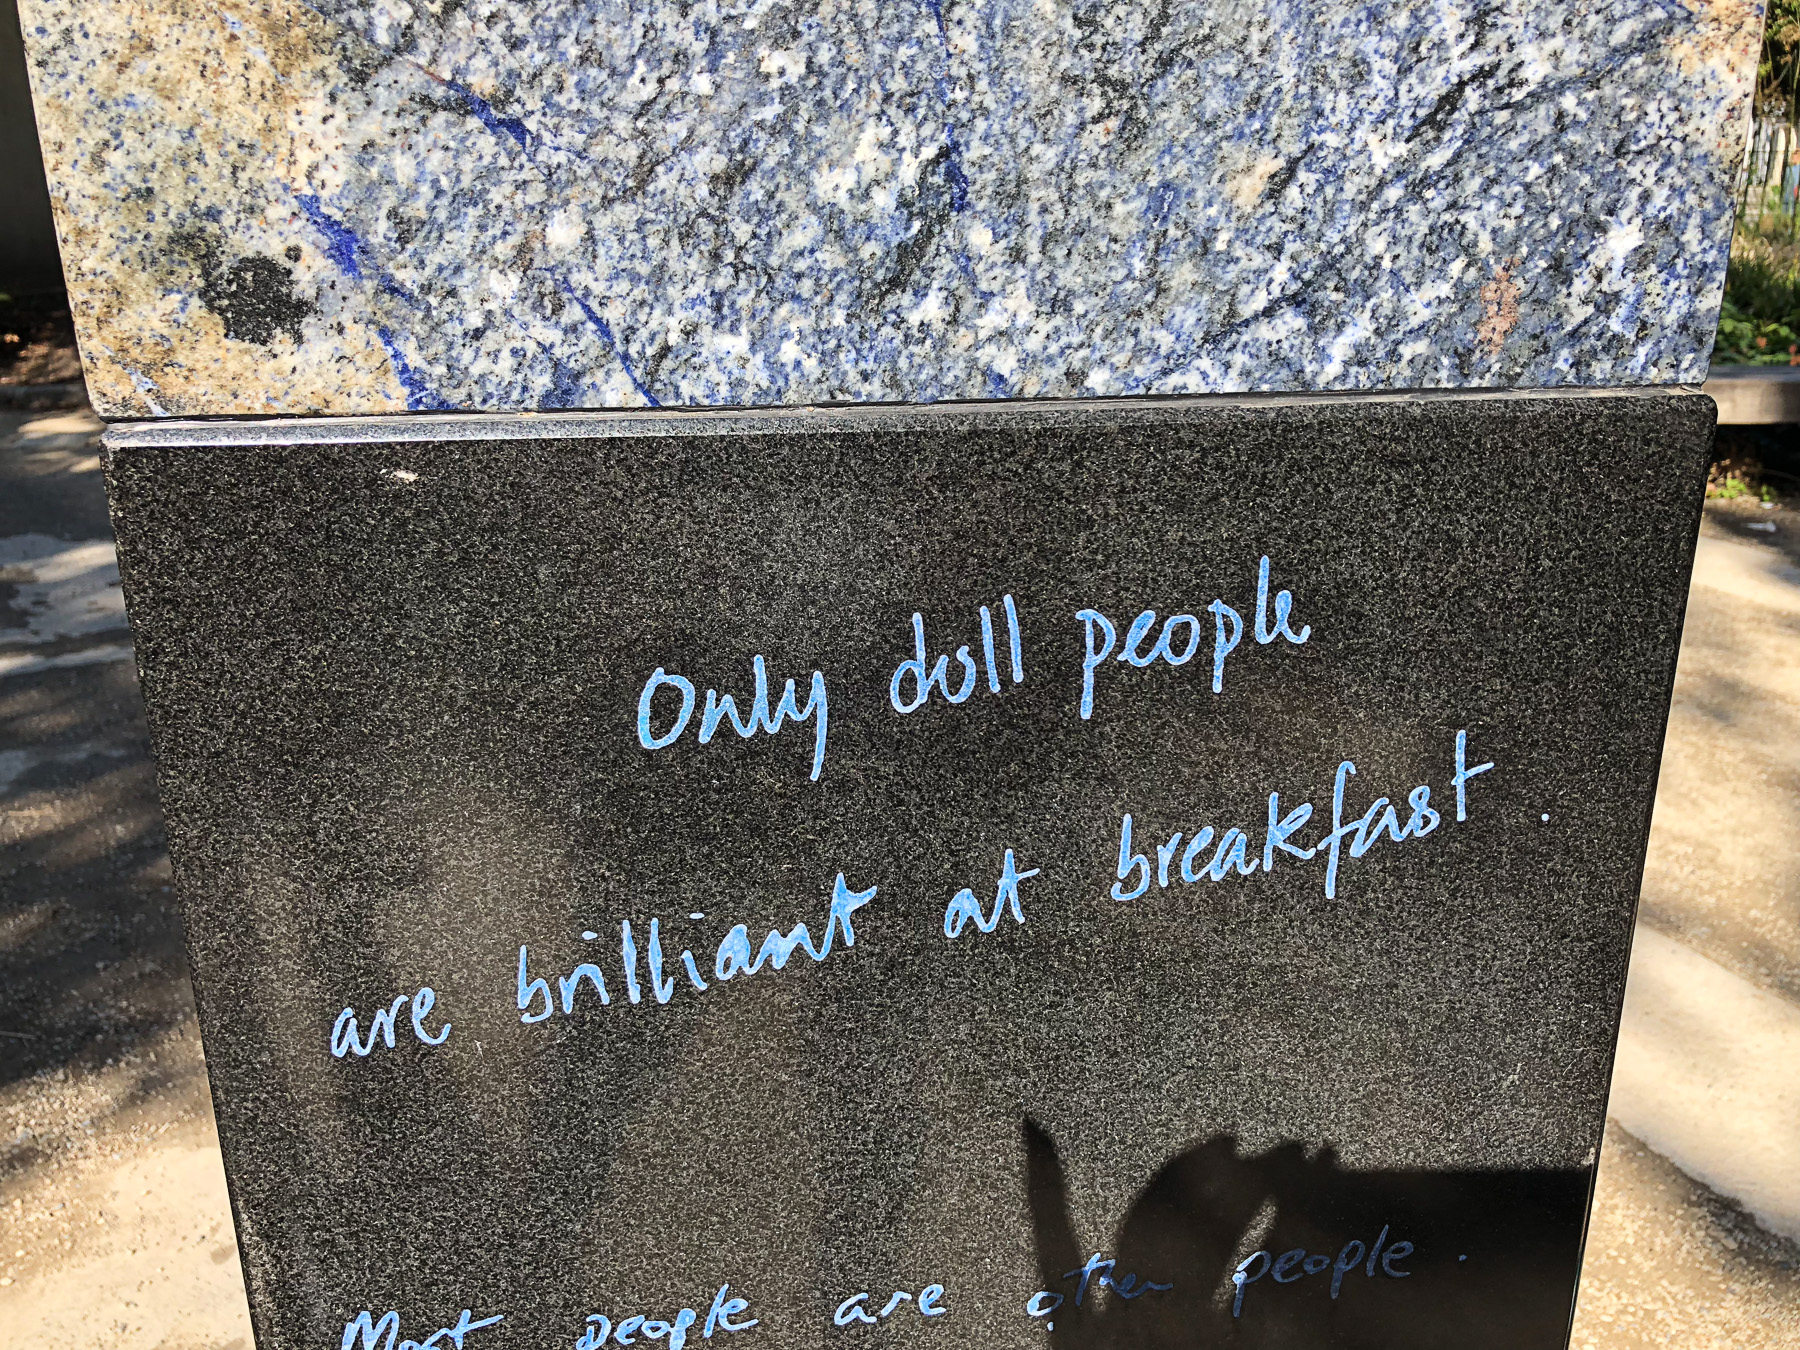 Only doll people
are brilliant at breakfast.
Most people are other people.